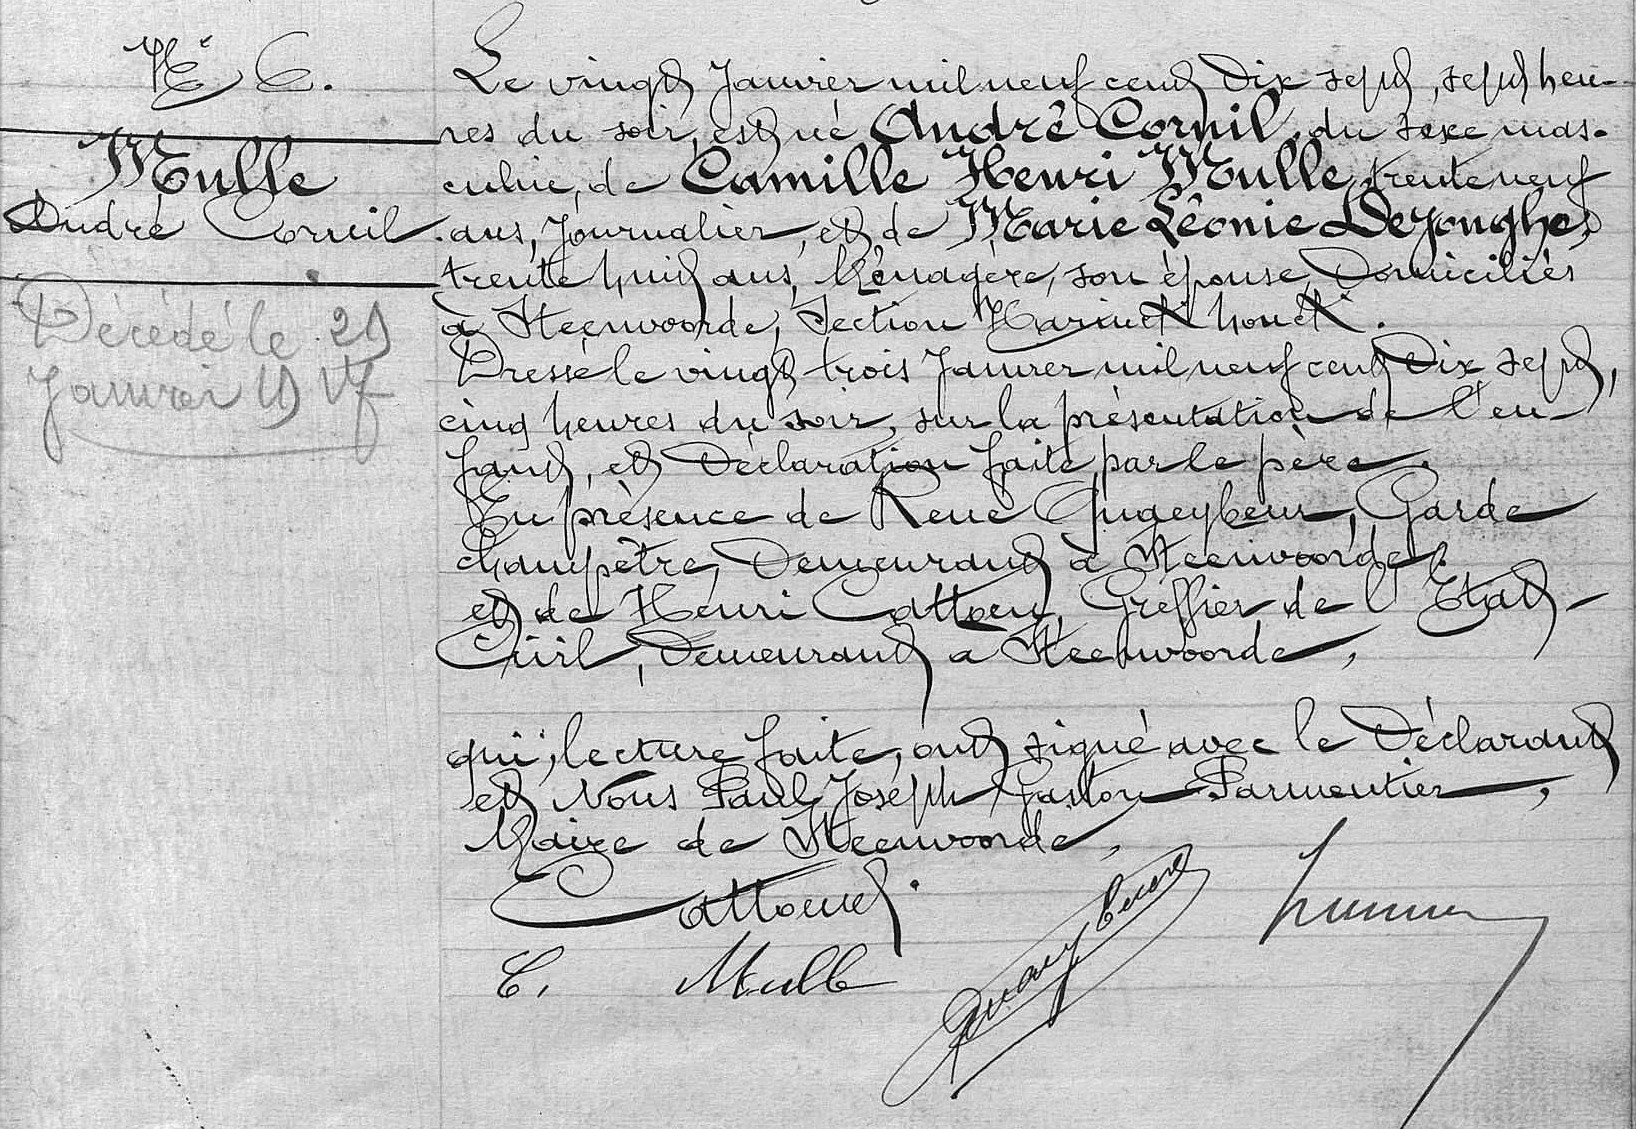 N° 6.
Mulle
André Corneil.
Décédé le 29
Janvier 1917
Le vingt Janvier mil neuf cent Dix sept, sept heu-
res du soir, est né André Cornil, du sexe mas-
culin, de Camille Henri Mulle, trente neuf
ans, Journalier, et de Marie Léonie Dejonghe,
trente huit ans, Ménagère, son épouse, Domiciliés
à Steenvoorde, Section
Dressé le vingt-trois Janvier mil neuf cent Dix sept,
cinq heures du soir, sur la présentation de l'en-
fant, et Déclaration faite par le père.
En présence de René Garde
champêtre, Demeurant à Steenvoorde,
et de Henri Cattoen, Greffier de l'Etat-
Civil, Demeurant à Steenvoorde,
qui, lecture faite, ont signé avec le Déclarant
et Nous Paul Joseph Gaston Parmentier,
Maire de Steenvoorde,
C. Mulle